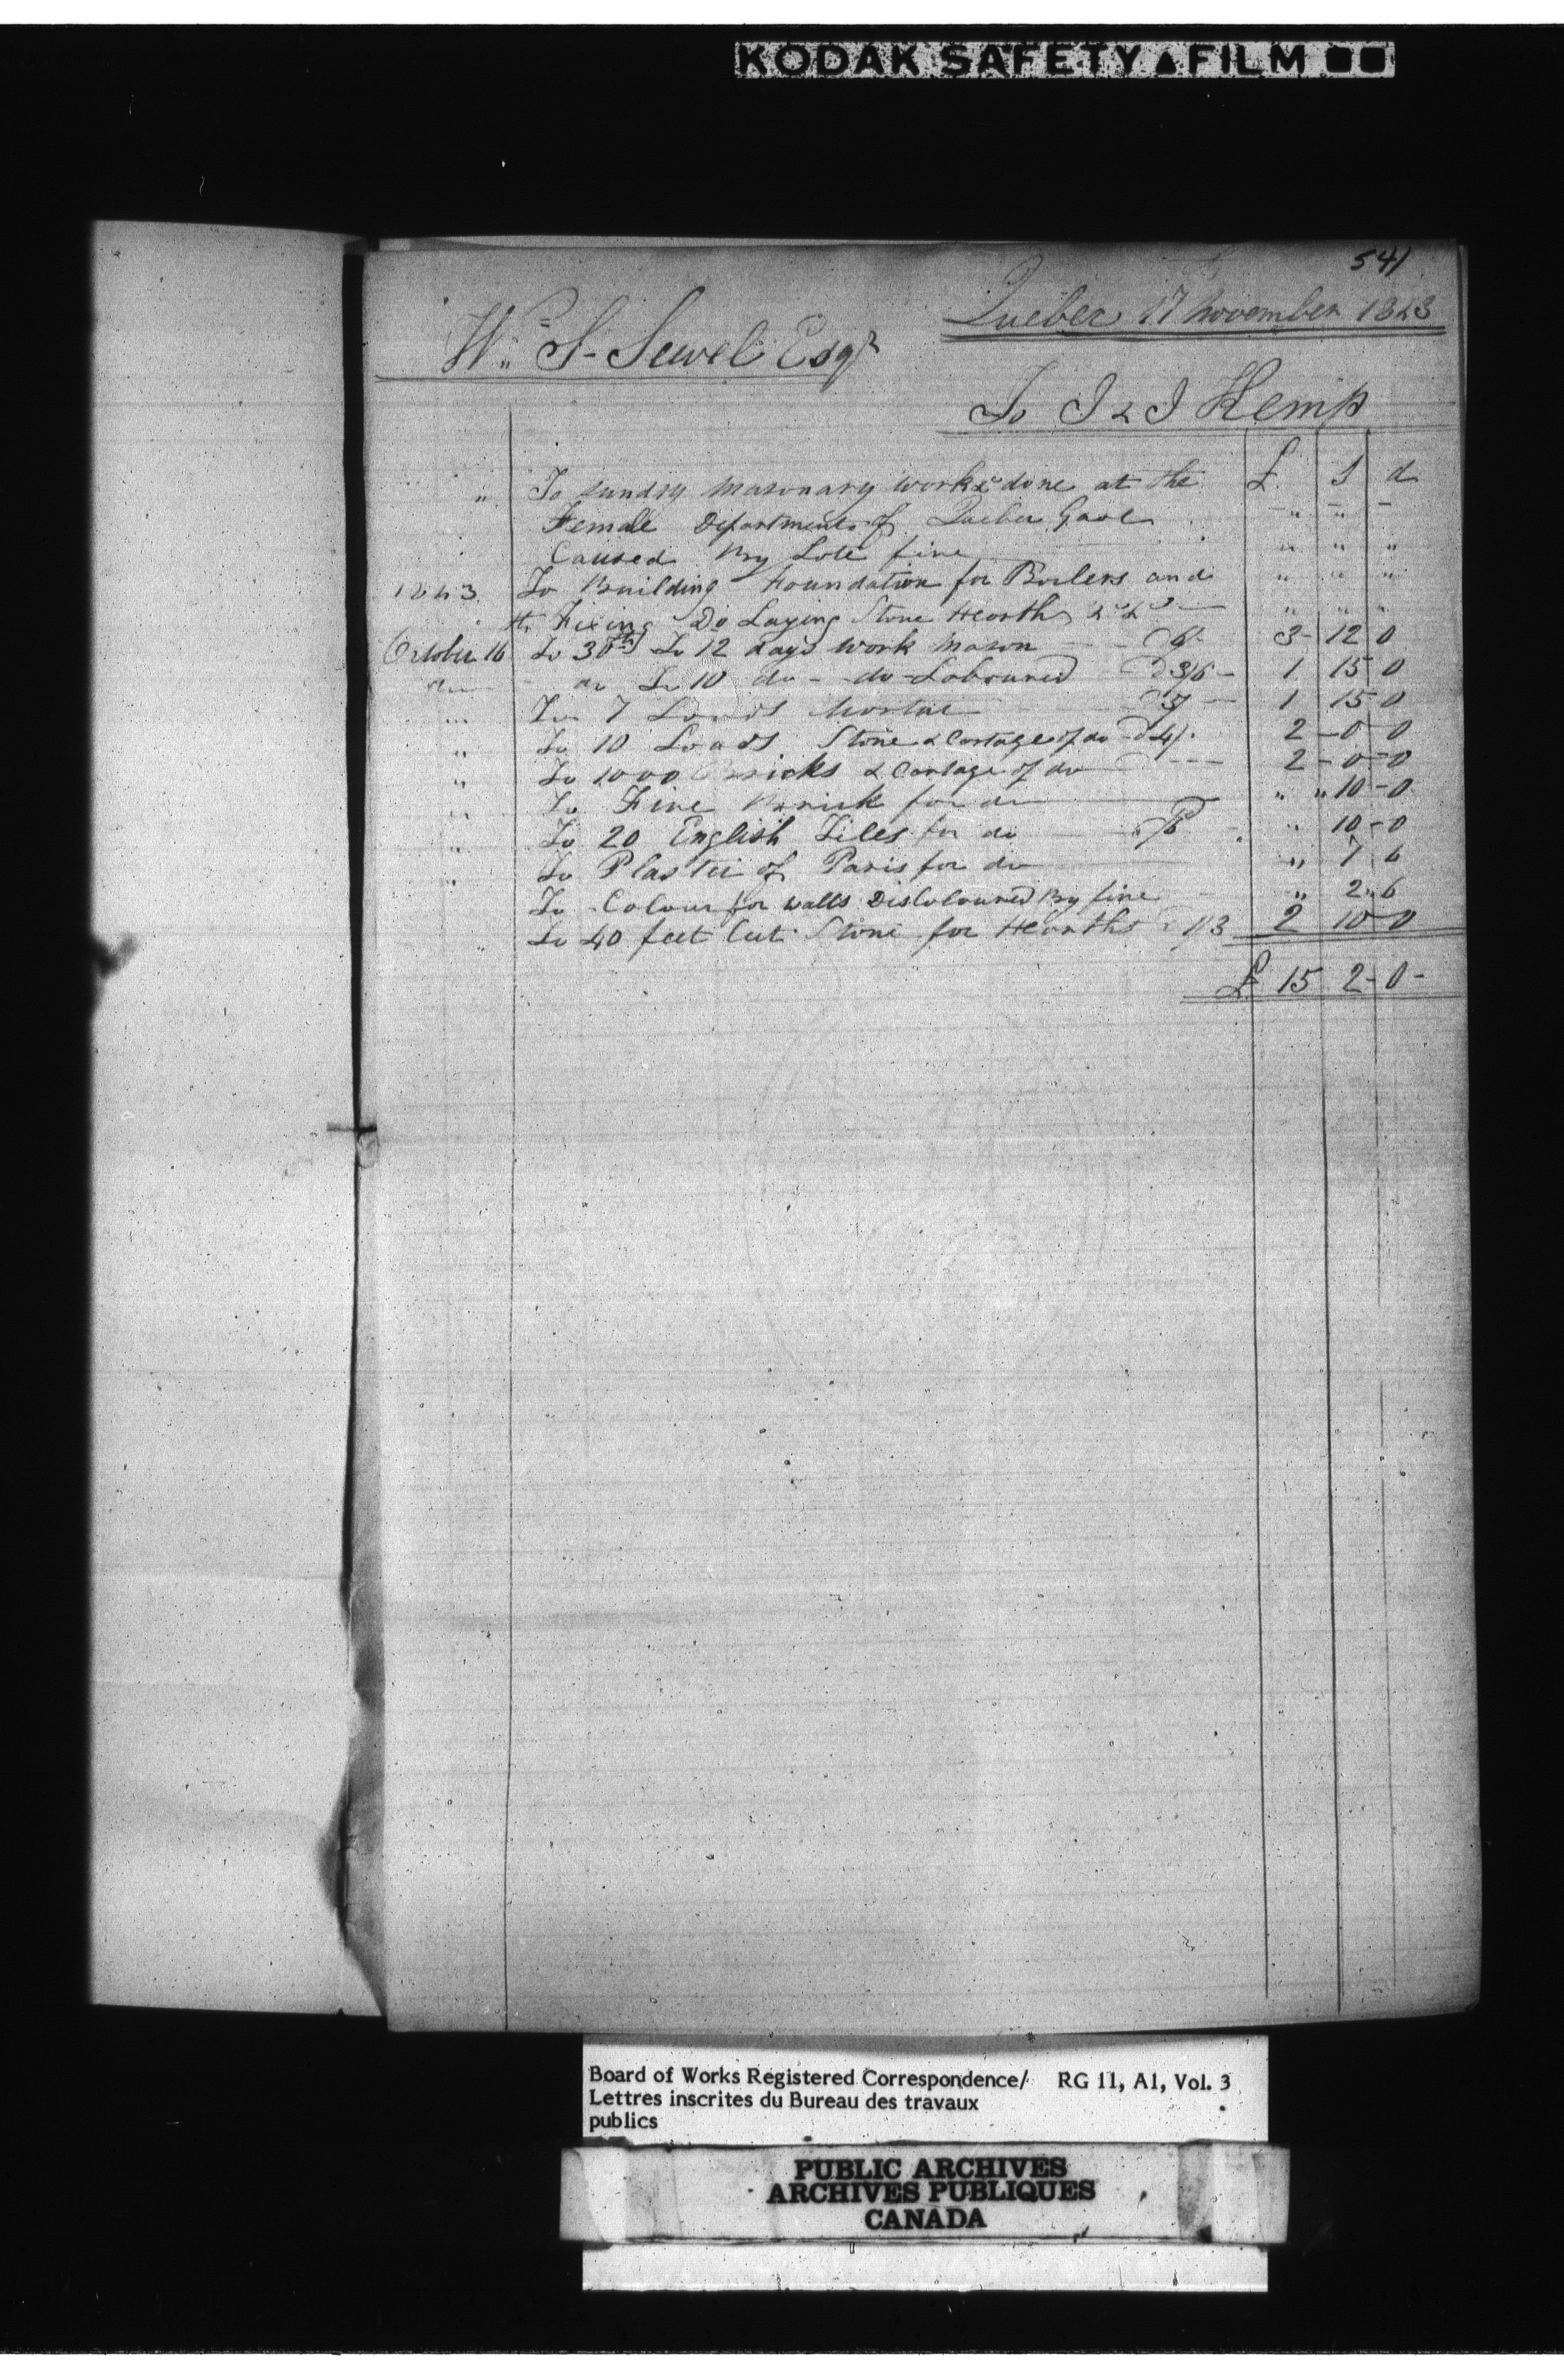 KODAK SAFETY ▲ FILM
541
Quebec 17 November 1843
Wm S- Sewel Esqr
To J & J Kemp
£ S d
" To sundry Masonary work & done at the
Female Department of Quebec Gaol - " - " -
Caused By Late fire " " "
1843 To Building Foundation for Boilers and " " "
Fixing Do Laying Stone Hearths &c &c " " "
October 16th To 30th To 12 days work Mason @ 6/- 3- 12 0
do do To 10 do - do Labourer @ 3/6 - 1 15 0
" To 7 Loads Mortar @ 5/ - 1 15 0
" To 10 Loads Stone & Cartage of do @ 4/- 2 - 0 0
" To 1000 Bricks & Cartage of do - - - 2 - 0 - 0
" To Fire Brick for do " " 10 - 0
" To 20 English Tiles for do /6 " 10 - 0
" To Plaster of Paris for do " 7 6
To Colour for walls Discoloured By fire " 2 " 6
To 40 feet Cut Stone for Hearths @ 1/3 2 10 0
£ 15 2 - 0 -
Board of Works Registered Correspondence/ RG 11, A1, Vol. 3
Lettres inscrites du Bureau des travaux
publics
PUBLIC ARCHIVES
ARCHIVES PUBLIQUES
CANADA